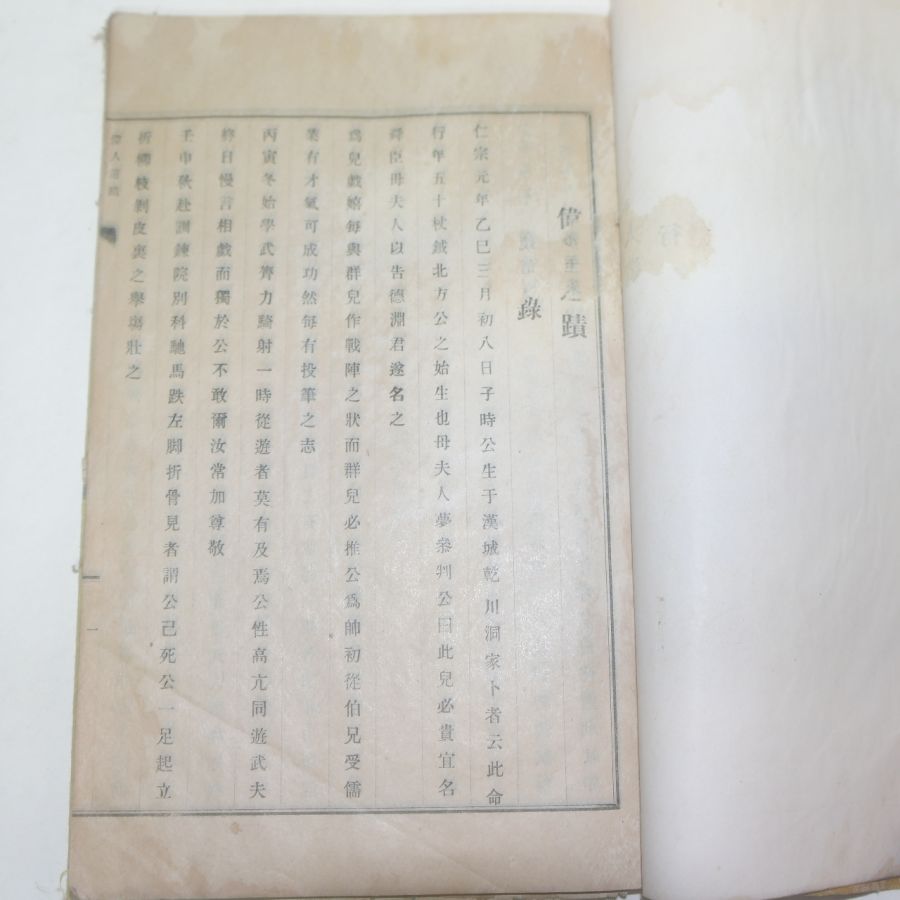 偉 蹟
錄
仁宗元年乙巳三月初八日子時公生于漢城乾川洞家卜者云此命
行年五十杖鉞北方公之始生也母夫人夢參判公曰此兒必貴宜名
舜臣母夫人以告德淵君遂名之
爲兒戲嬉每與群兒作戰陣之狀而群兒必推公爲帥初從伯兄受儒
業有才氣可成功然每有投筆之志
丙寅冬始學武膂力騎射一時從遊者莫有及焉公性高亢同遊武夫
終日慢言相戲而獨於公不敢爾汝常加尊敬
壬申秋赴訓鍊院別科馳馬跌左脚折骨見者謂公已死公一足起立
折柳枝剝皮裹之擧場壯之
偉人遺蹟
一